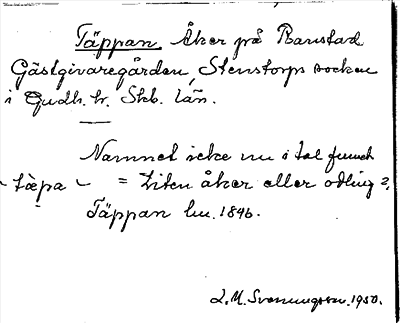 Täppan. Åker på Banstad
Gästgivaregården, Stenstorps socken
i Gudh. hr. Skb. län.
Namnet icke nu i tal
täpa = Liten åker eller odling?
Täppan lm. 1846.
L. M. Svenungsson. 1950.